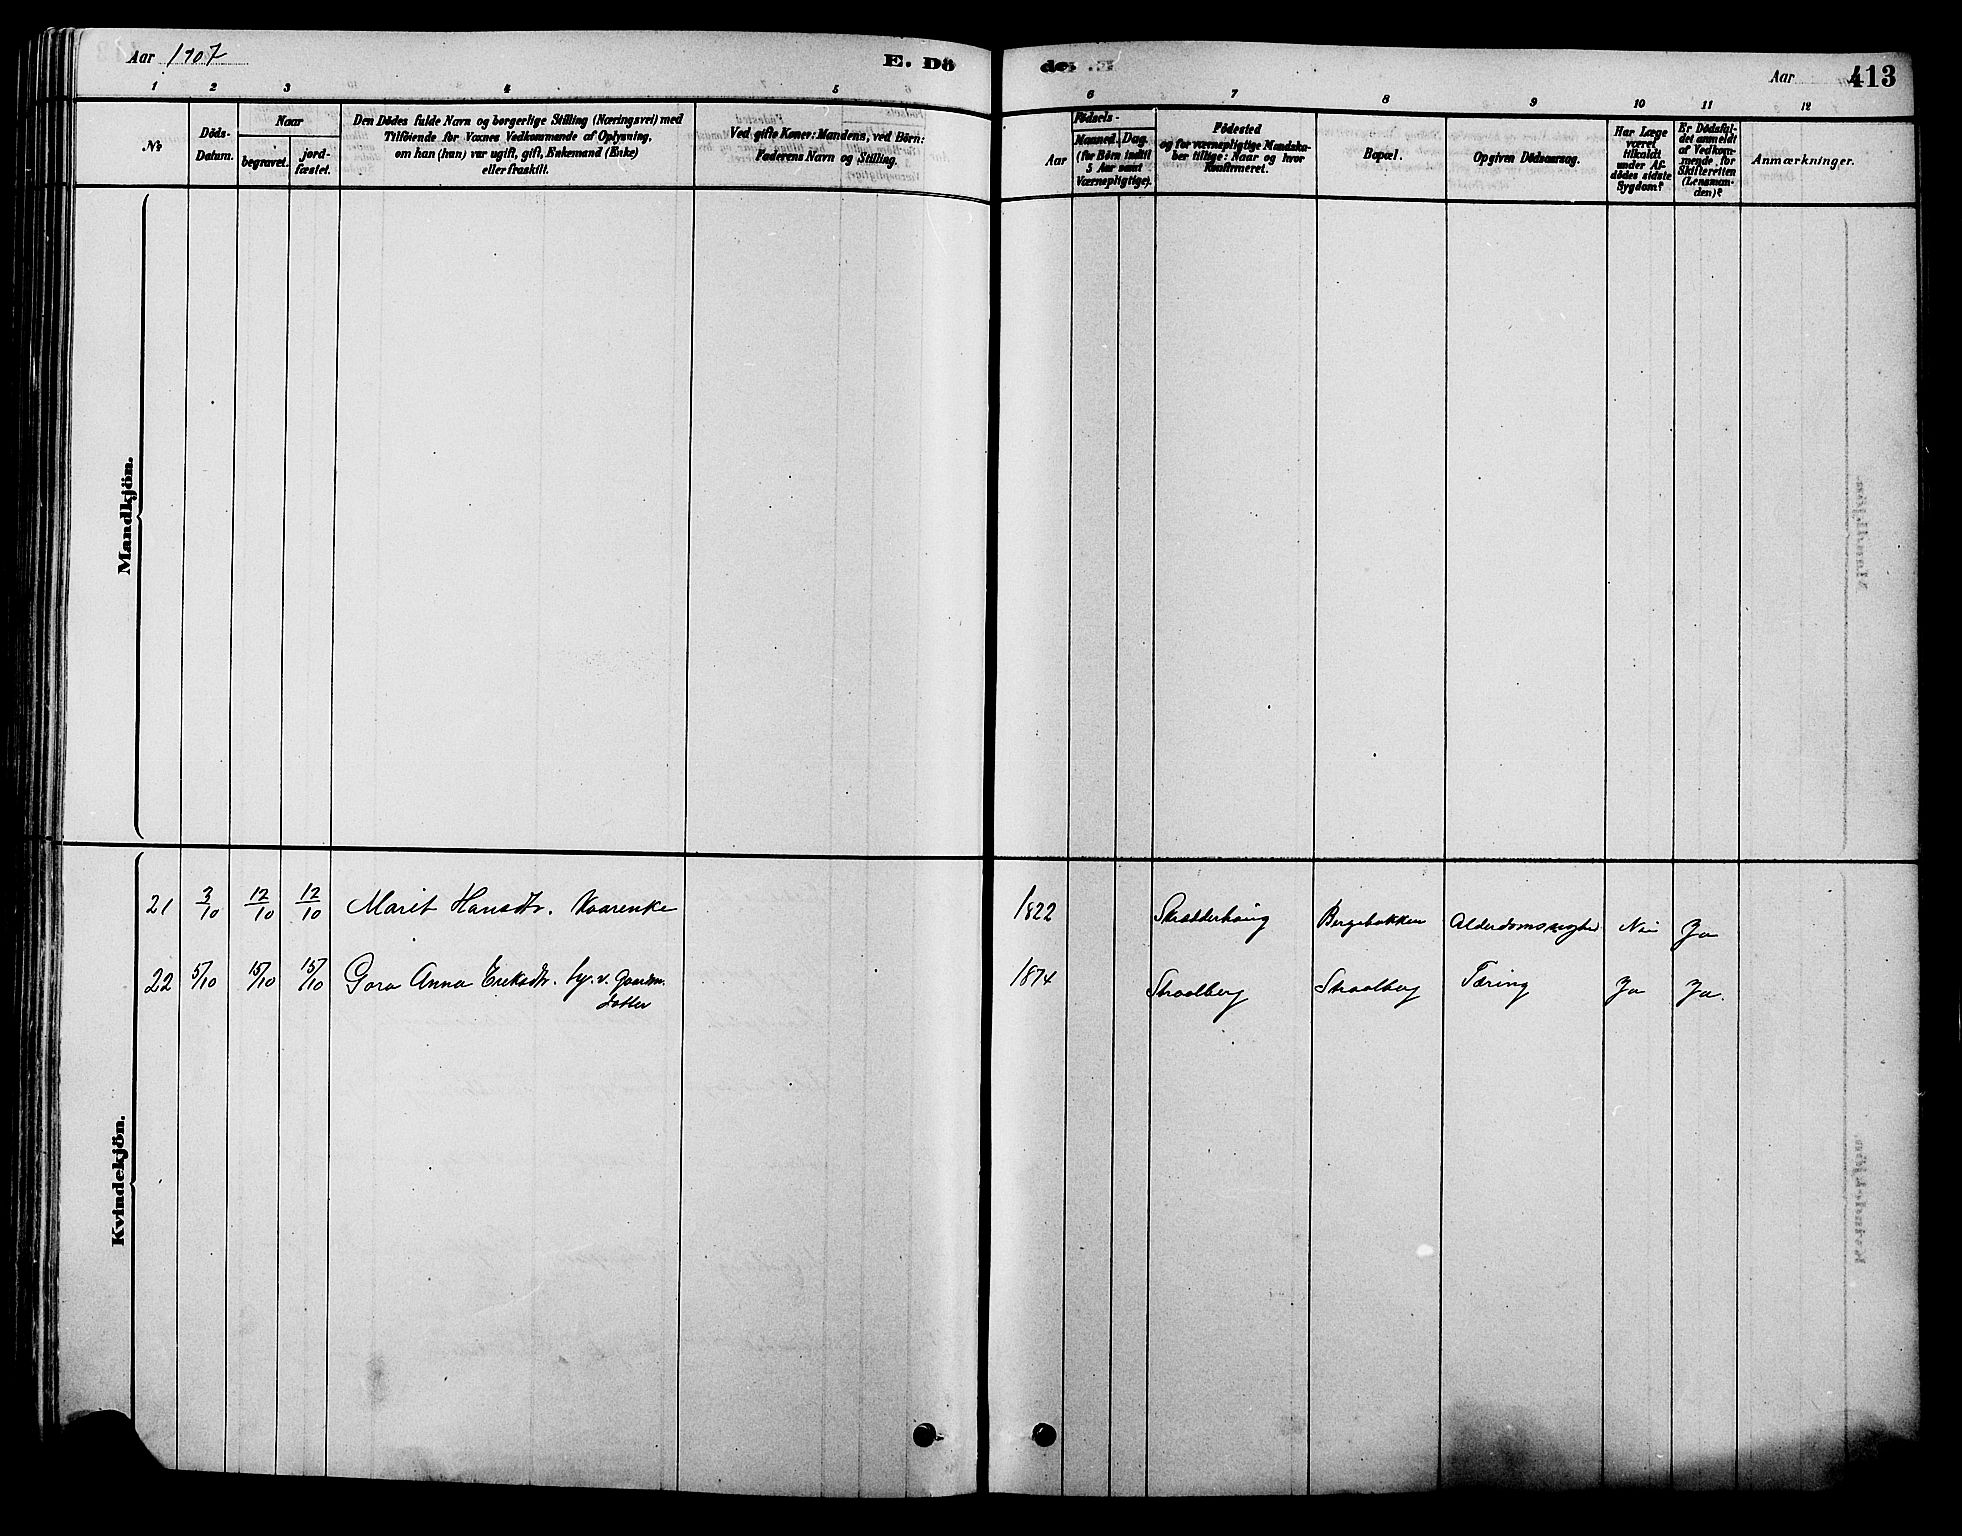 Aar 1907
E. Dö
de.
Aar
413
1 2 3 4 5 6 7 8 9 10 11 12
No
Döds-
Datum.
Naar
begravet.
jord-
fæstet.
Den Dödes fulde Navn og borgerlige Stilling (Næringsvei) med
Tilföiende for Voxnes Vedkommende af Oplysning,
om han (hun) var ugift, gift, Enkemand (Enke)
eller fraskilt.
Ved gifte Koner: Mandens, ved Börn:
Faderens Navn og Stilling.
Födsels-
Aar
Maaned. Dag.
(for Börn indtil
5 Aar samt
Værnepligtige).
Födested
og for værnepligtige Mandska-
ber tillige: Naar og hvor
Konfirmeret.
Bopæl.
Opgiven Dödsaarsag.
Har Læge
været
tilkaldt
under Af-
dödes sidste
Sygdom?
Er Dödsfal-
det anmeldt
af Vedkom-
mende for
Skifteretten
(Lensman-
den)?
Anmærkninger.
Mandkjön.
Kvindekjön.
21 3/10 12/10 12/10 Marit Hansdtr. 1822 Bergebakken Nei Ja
22 5/10 15/10 15/10 Goro Anna Eriksdtr. v. Gaardm. 1874 Straalberg Straalberg Tæring Ja Ja.
datter